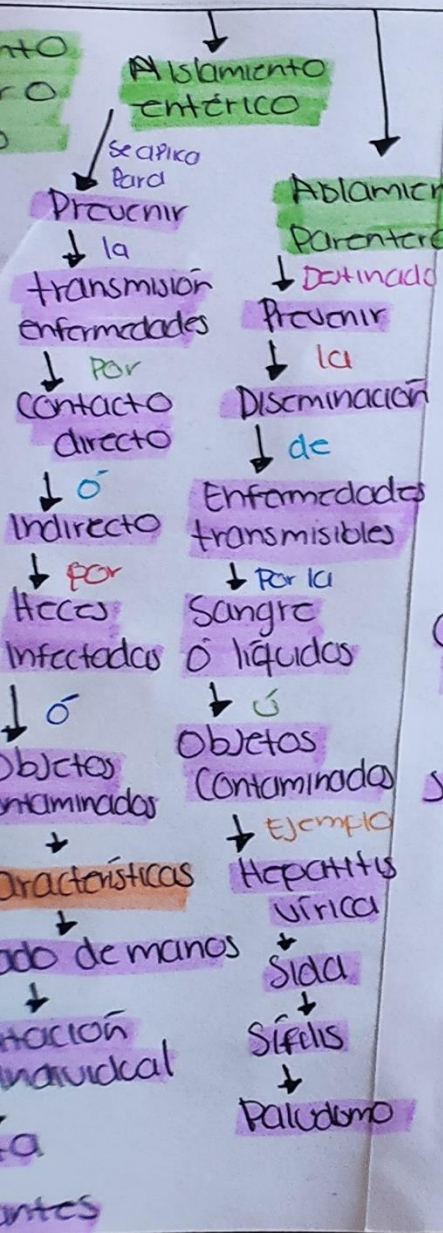 nto
ro
o
Aislamiento
entérico
se aplica
Para
Prevenir
la
transmisión
enfermedades
Por
Contacto
directo
ó
Indirecto
por
Heces
Infectadas
ó
Objetos
ontaminados
aracterísticas
ado de manos
itación
individual
ta
antes
Ablamien
Parentera
Destinado
Prevenir
la
Diseminación
de
Enfermedades
transmisibles
Por la
Sangre
ó líquidos
ú
Objetos
Contaminados
Ejemplo
Hepatitis
vírica
Sida
Sífilis
Paludismo